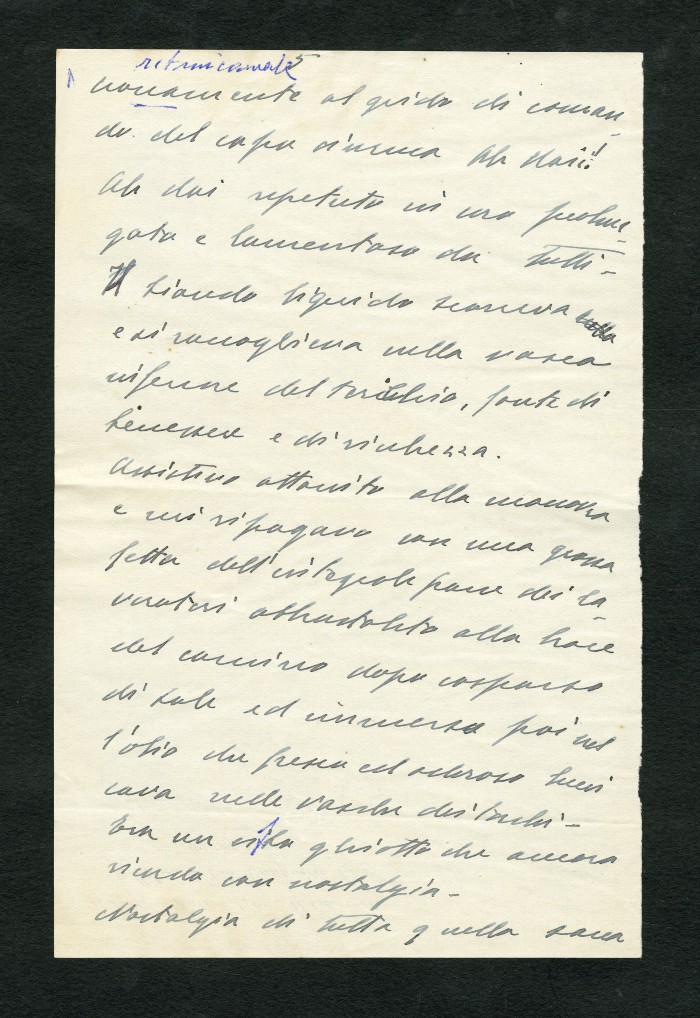 ritmicamente 5
nuovamente al grido di coman-
do del capo ciurma Ah dai!!
Ah dai ripetuto in uno prolun-
gato e lamentoso da tutti -
Il biondo liquido scorreva
e si raccoglieva nella vasca
inferiore del torchio, fonte di
benessere e di ricchezza.
Assistevo attonito alla manovra
e mi ripagavo con una grossa
fetta dell'integrale pane dei la-
voratori abbrustolito alla brace
del camino dopo cosparso
di sale ed immerso poi nel
l'olio che fresco ed odoroso luci
cava nelle vasche dei torchi -
Era un cibo ghiotto che ancora
ricordo con nostalgia -
Nostalgia di tutta quella sana